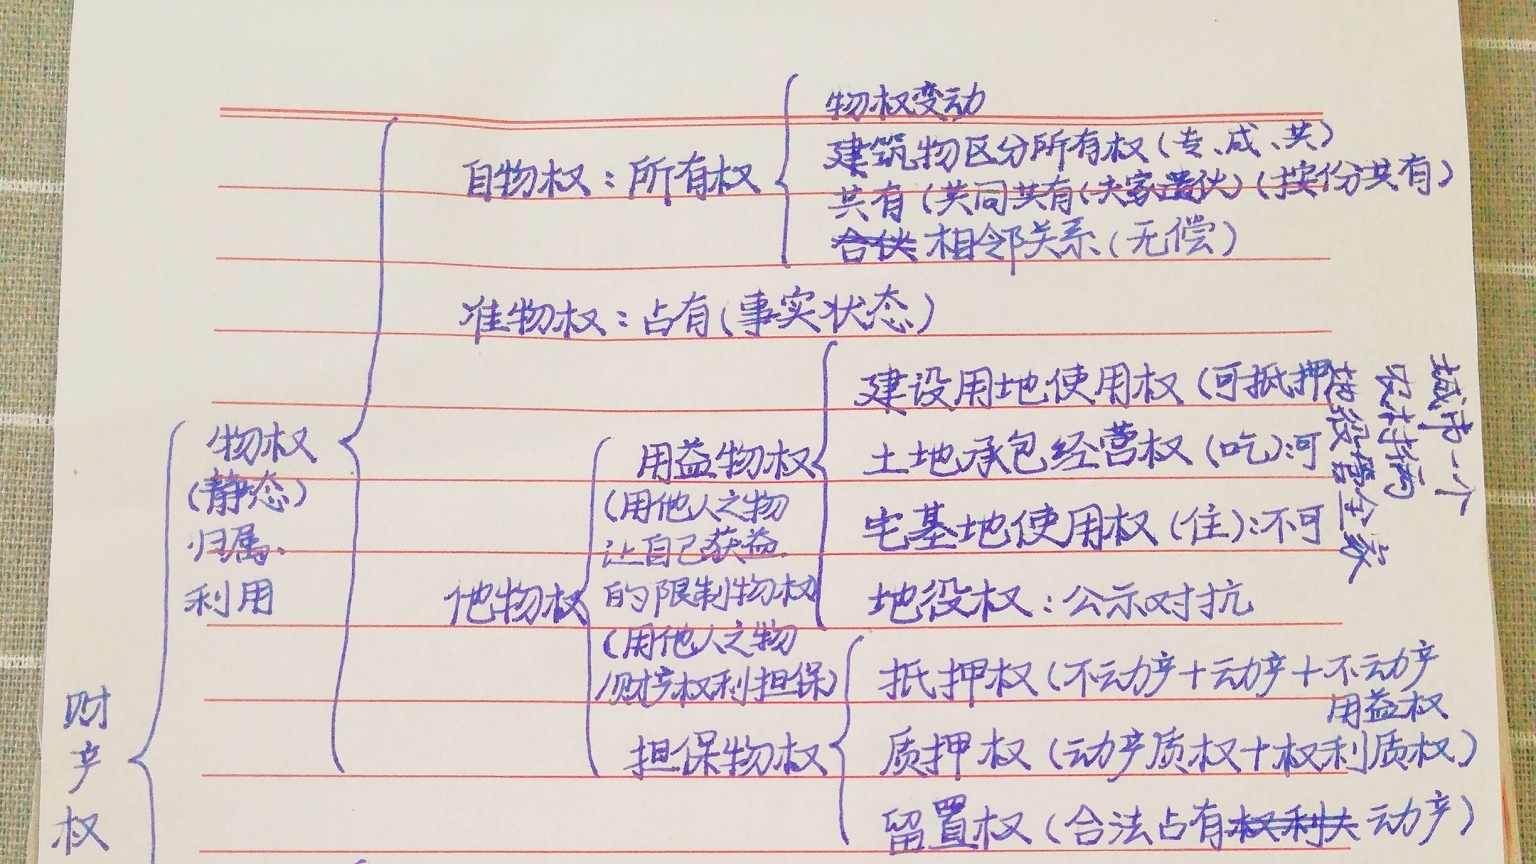 物权变动
建筑物区分所有权(专、成、共)
自物权:所有权
共有(共同共有(夫家遗伙)(按份共有)
相邻关系(无偿)
准物权:占有(事实状态)
建设用地使用权(可抵押
城市一个
农村两
地役管全家
物权
(静态)
归属、
利用
用益物权
(用他人之物
让自己获益
的限制物权)
土地承包经营权(吃):可
宅基地使用权(住):不可
他物权
地役权:公示对抗
(用他人之物
/财产权利担保)
担保物权
抵押权(不动产+动产+不动产
用益权
质押权(动产质权+权利质权)
留置权(合法占有动产)
财
产
权